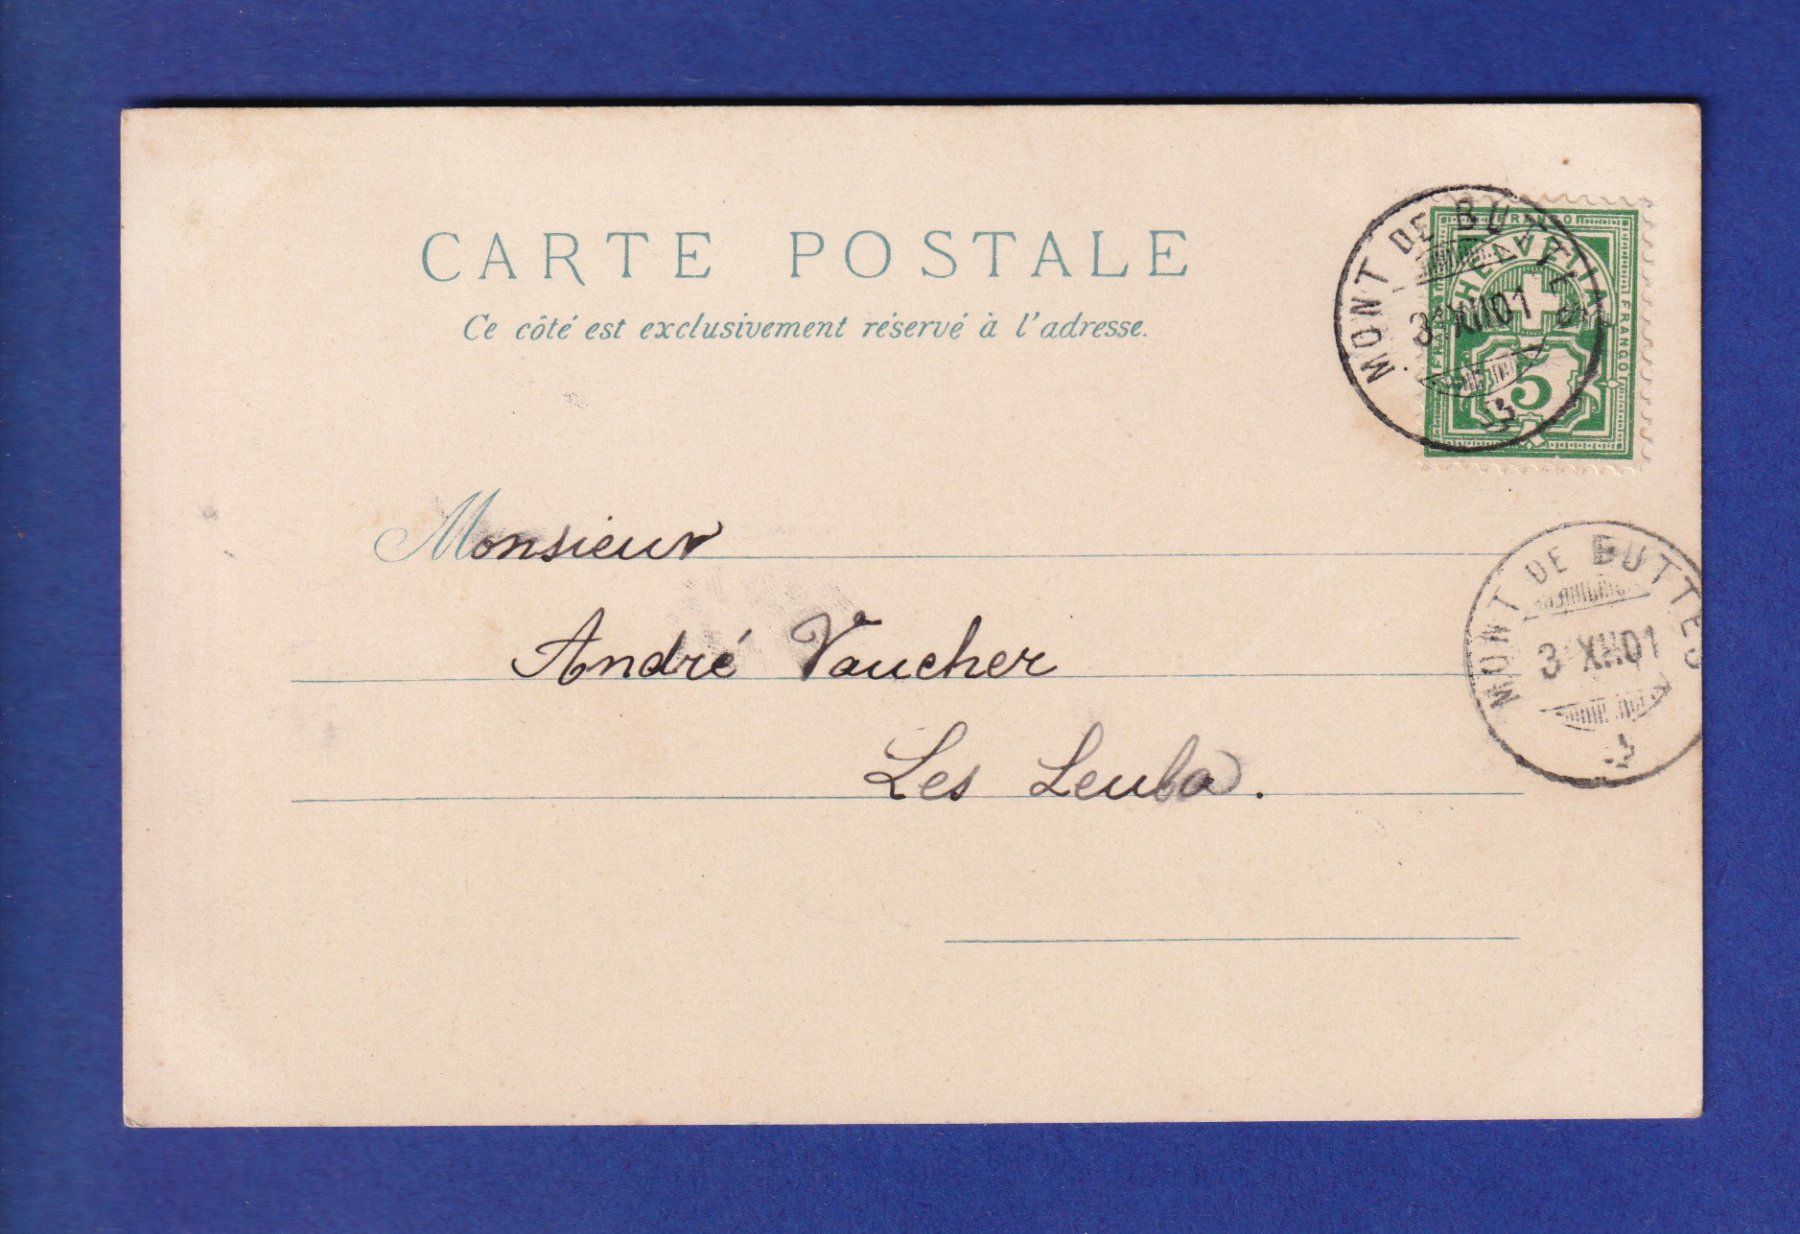 CARTE POSTALE
Ce côté est exclusivement réservé à l'adresse.
MONT DE BUTTES
XII 01
3
HELVETIA
FRANCO
5
Monsieur
André Vaucher
Les Leuba.
MONT DE BUTTES
XII 01
3